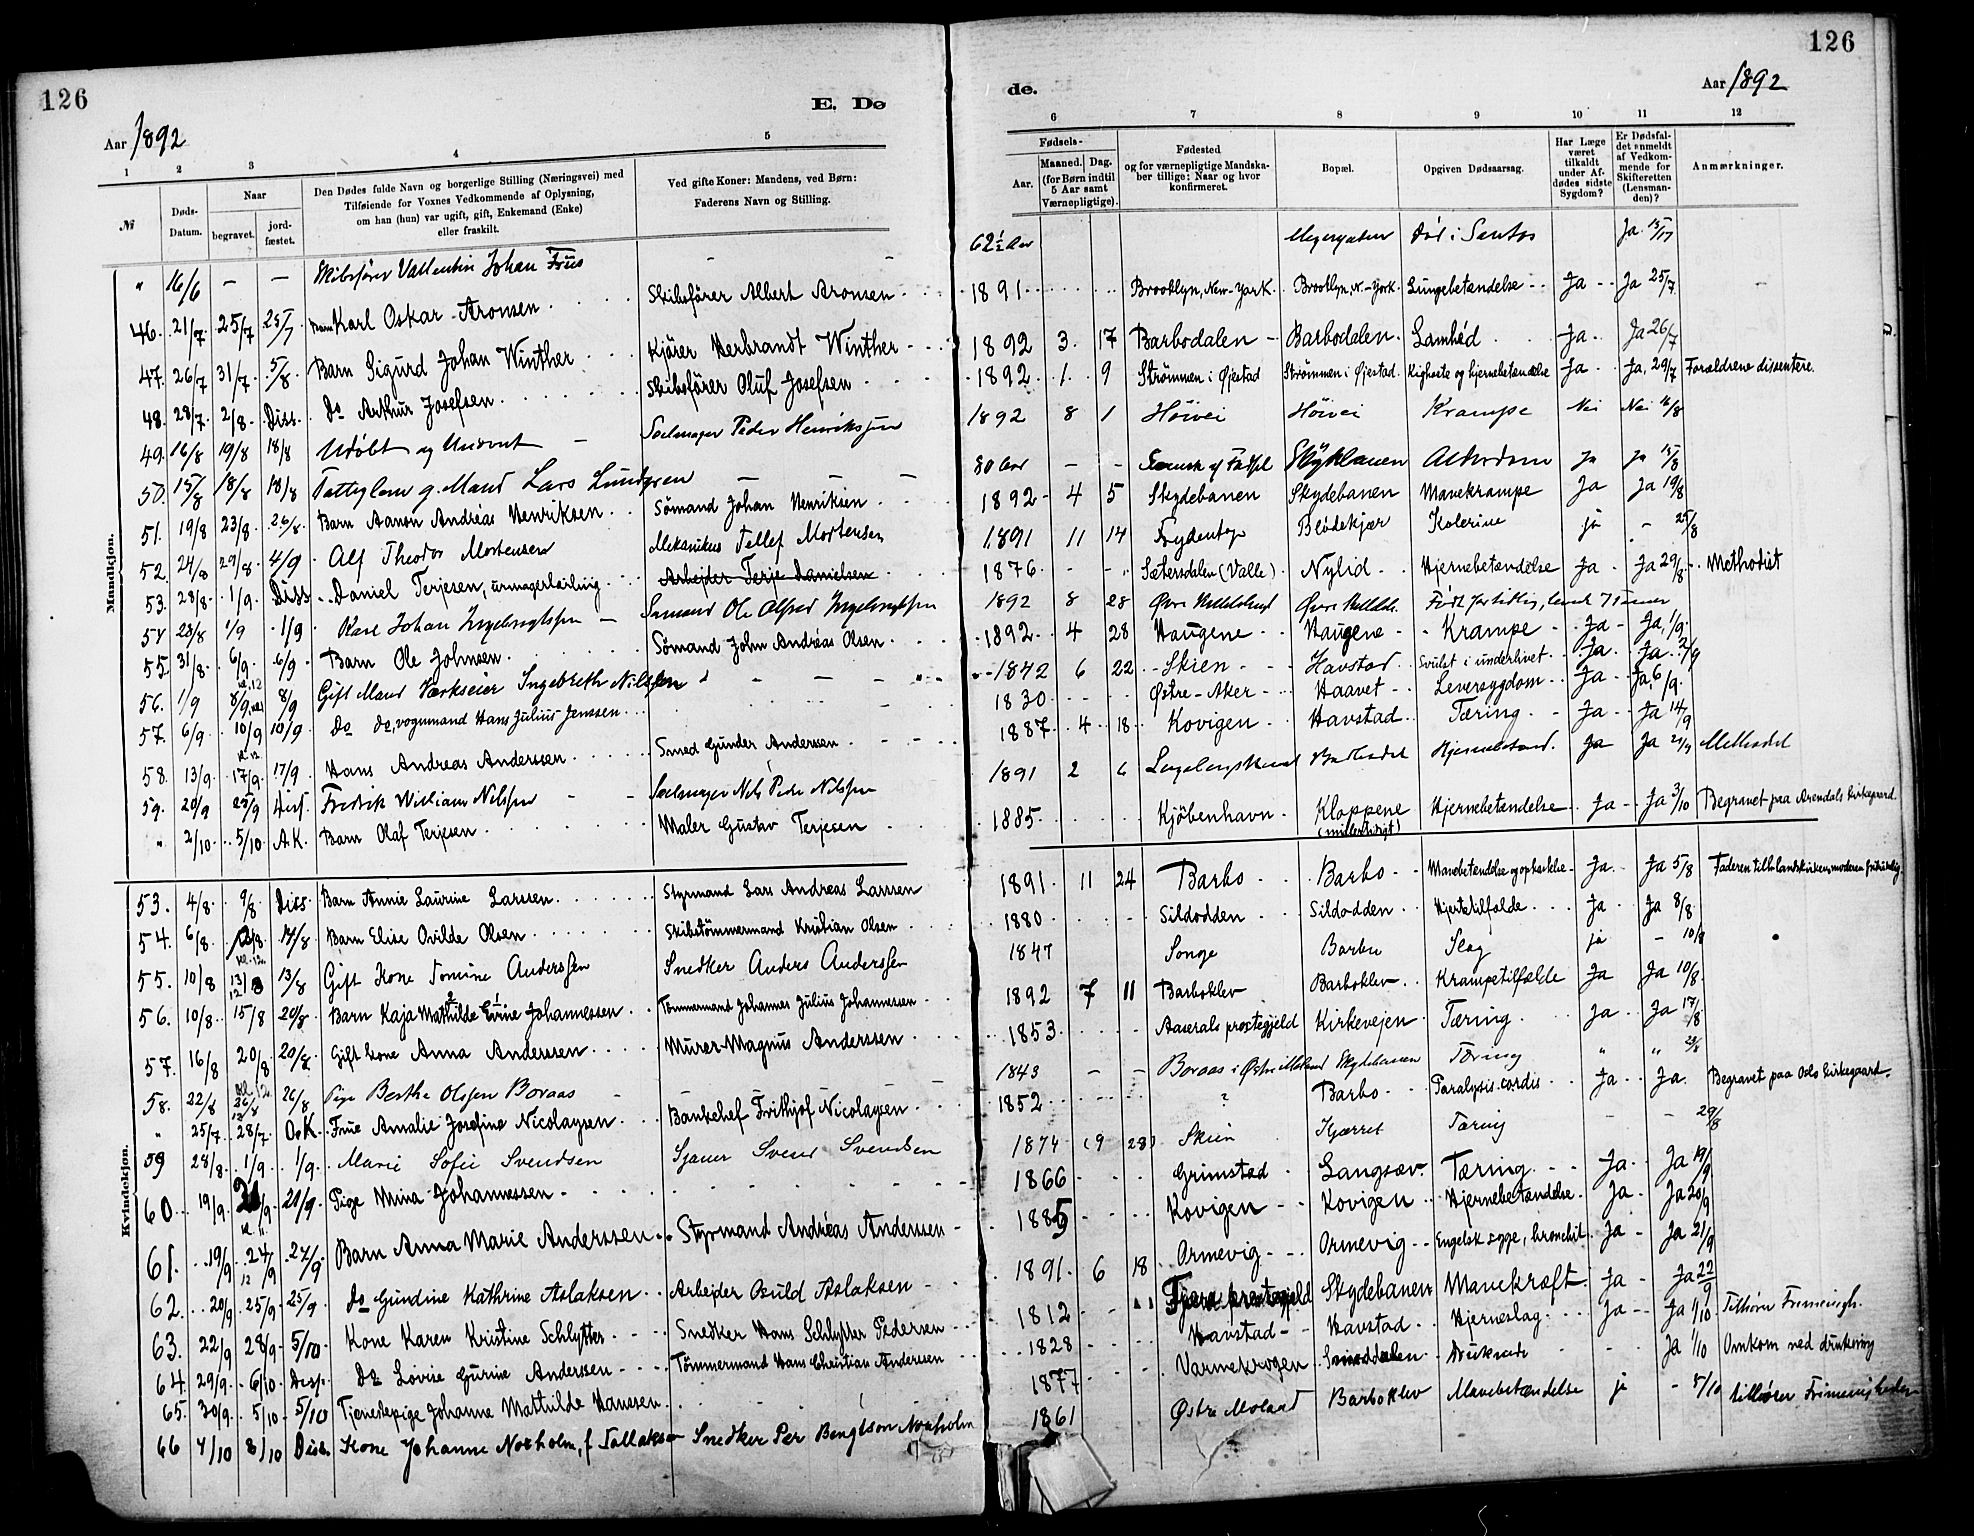 126
126
E. Dø
de.
Aar 1892
Aar 1892
1 2 3 4 5
6 7 8 9 10 11 12
№
Døds-Datum.
Naar
begravet.
jord-fæstet.
Den Dødes fulde Navn og borgerlige Stilling (Næringsvei) med
Tilføiende for Voxnes Vedkommende af Oplysning,
om han (hun) var ugift, gift, Enkemand (Enke)
eller fraskilt.
Ved gifte Koner: Mandens, ved Børn:
Faderens Navn og Stilling.
Fødsels-
Aar.
Maaned. Dag.
(for Børn indtil
5 Aar samt
Værnepligtige).
Fødested
og for værnepligtige Mandska-
ber tillige: Naar og hvor
konfirmeret.
Bopæl.
Opgiven Dødsaarsag.
Har Læge
været
tilkaldt
under Af-
dødes sidste
Sygdom?
Er Dødsfal-
det anmeldt
af Vedkom-
mende for
Skifteretten
(Lensman-
den)?
Anmærkninger.
Mandkjøn.
" 16/6 — — Skibsfører Vallentin Johan Friis - - 62½ Aar død i Santos Ja 15/17
46. 21/7 25/7 25/7 Barn Karl Oskar Aronsen Skibsfører Albert Aronsen 1891 Brooklyn, New-York Brooklyn, N.-York Lungebetændelse Ja Ja 25/7
47. 26/7 31/7 5/8 Barn Sigurd Johan Winther Kjører Herbrandt Winther 1892 3 17 Barbodalen Barbodalen Ja Ja 26/7
48. 28/7 2/8 Diss. do Arthur Josefsen Skibsfører Oluf Josefsen 1892 1 9 Strømmen i Øjestad Strømmen i Øjestad Kighoste og hjernebetændelse Ja Ja, 29/7 Forældrene dissentere.
49. 16/8 19/8 18/8 Udøbt og Unævnt — Seilmager Peder Henrikssen 1892 8 1 Høivei Høivei Krampe Nei Nei 16/8
50. 15/8 18/8 18/8 Fattiglem g. Mand Lars Lundgren — — 80 Aar - - Skytebanen Alderdom Ja Ja 15/8
51. 19/8 23/8 26/8 Barn Aanon Andreas Henriksen Sømand Johan Henriksen 1892 4 5 Skydebanen Skydebanen Mavekrampe Ja Ja 19/8
52. 24/8 29/8 4/9 Alf Theodor Mortensen Mekanikus Tellef Mortensen 1891 11 14 Frydentop Blødekjær Kolerine ja - 25/8
53. 28/8 1/9 Diss Daniel Terjesen, urmagerlærling Arbejder Terje Danielsen 1876 - - Sætersdalen (Valle) Nylid Hjernebetændelse Ja Ja 29/8 Methodist
54 28/8 1/9 1/9 Karl Johan Ingebrigtsen — Sømand Ole Alfred Ingebrigtsen 1892 8 28 Født for tidlig, levede 7 Timer
55. 31/8 6/9 6/9 Barn Ole Johnsen Sømand John Andreas Olsen 1892 4 28 Haugene Haugene Krampe Ja Ja, 1/9
56. 1/9 8/9 kl. 12 8/9 Gift Mand Værkseier Ingebreth Nilssen — 1842 6 22 Skien Havstad Svulst i underlivet Ja Ja 2/9
57. 6/9 10/9 10/9 do do, vognmand Hans Julius Jenssen 1830 Østre-Aker Haavet Leversygdom Ja Ja, 6/9
58. 13/9 17/9 kl. 12 17/9 Hans Andreas Anderssen Smed Gunder Anderssen 1887 4 18 Kovigen Havstad Tæring Ja Ja 14/9
59. 20/9 25/9 Diss. Fredrik William Nilssen — Seilmager Nils Peder Nilssen 1891 2 6 Ja Ja 21/9 Methodist
" 2/10 5/10 A.K. Barn Olaf Terjesen Maler Gustav Terjesen 1885 Kjøbenhavn Kloppene (midlertidigt) Hjernebetændelse Ja Ja 3/10 Begravet paa Arendals kirkegaard
Kvindekjøn.
53. 4/8 9/8 Diss. Barn Annie Laurine Larssen Styrmand Lars Andreas Larssen 1891 11 24 Barbo Barbo Mavebetændelse og opkastelse Ja Ja 5/8 Faderen tilh. landskirken, moderen frikirkelig.
54. 6/8 12/8 kl. 12 17/8 Barn Elise Ovilde Olsen Skibstømmermand Kristian Olsen 1880 Sildodden Sildodden Hjertetilfælde Ja Ja 8/8
55. 10/8 13/8 13/8 Gift Kone Tomine Anderssen Snedker Anders Anderssen 1847 Songe Barbu Slag ja - 10/8
56. 10/8 15/8 20/8 Barn Kaja Mathilde Johannessen Tømmermand Johannes Julius Johannessen 1892 7 11 Barboklev Barboklev Krampetilfælde Ja Ja 10/8
57. 16/8 20/8 20/8 Gift kone Anna Anderssen Murer-Magnus Anderssen 1853 Aaserals prestegjeld Kirkevejen Tæring Ja Ja 17/8
58. 22/8 26/8 kl. 12 26/8 Pige Berthe Olssen Boraas — — 1843 — — Boraas i Østre Moland Skydebanen Tæring " " 23/8
" 25/7 28/7 O.K. Frue Amalie Josefine Nicolaysen Bankchef Frithjof Nicolaysen 1852 ? Barbo Paralysis cordis Ja Ja Begravet paa Oslo kirkegaard.
59 28/8 1/9 1/9 Marie Sofie Svendsen Sjauer Svend Svendsen 1874 (9 28) Skien Kjærret Tæring - - 29/8
60. 19/9 21/9 21/9 Pige Mina Johannessen 1866 Grimstad Langsæv Tæring Ja Ja 19/9
61. 19/9 24/9 24/9 Barn Anna Marie Anderssen Styrmand Andreas Anderssen 1885 Kovigen Kovigen Hjernebetændelse Ja Ja 20/9
62. 20/9 25/9 25/9 do Gundine Kathrine Aslaksen Arbejder Osuld Aslaksen 1891 6 18 Ormevig Ormevig Engelsk syge, bronchit Ja Ja 21/9
63. 22/9 28/9 5/10 Kone Karen Kristine Schlytter Snedker Hans Schlytter Pedersen 1812 Fjære prestegjeld Skydebanen Mavekræft Ja Ja 22/9
64. 29/9 6/10 Diss. do Lovise Gurine Anderssen Tømmermand Hans Christian Anderssen 1828 Havstad Havstad Hjerneslag Ja Ja 1/10 Tilhører Frimenigh.
65. 30/9 5/10 5/10 Tjenestepige Johanne Mathilde Hanssen 1877 Varmekrogen Druknede Ja 1/10 Omkom ved drukning
66 4/10 8/10 Diss. Kone Johanne Norholm, f. Tallaksen Snedker Per Bengtson Norholm 1861 Østre Moland Barboklev Mavebetændelse ja - 5/10 tilhører Frimenigheden